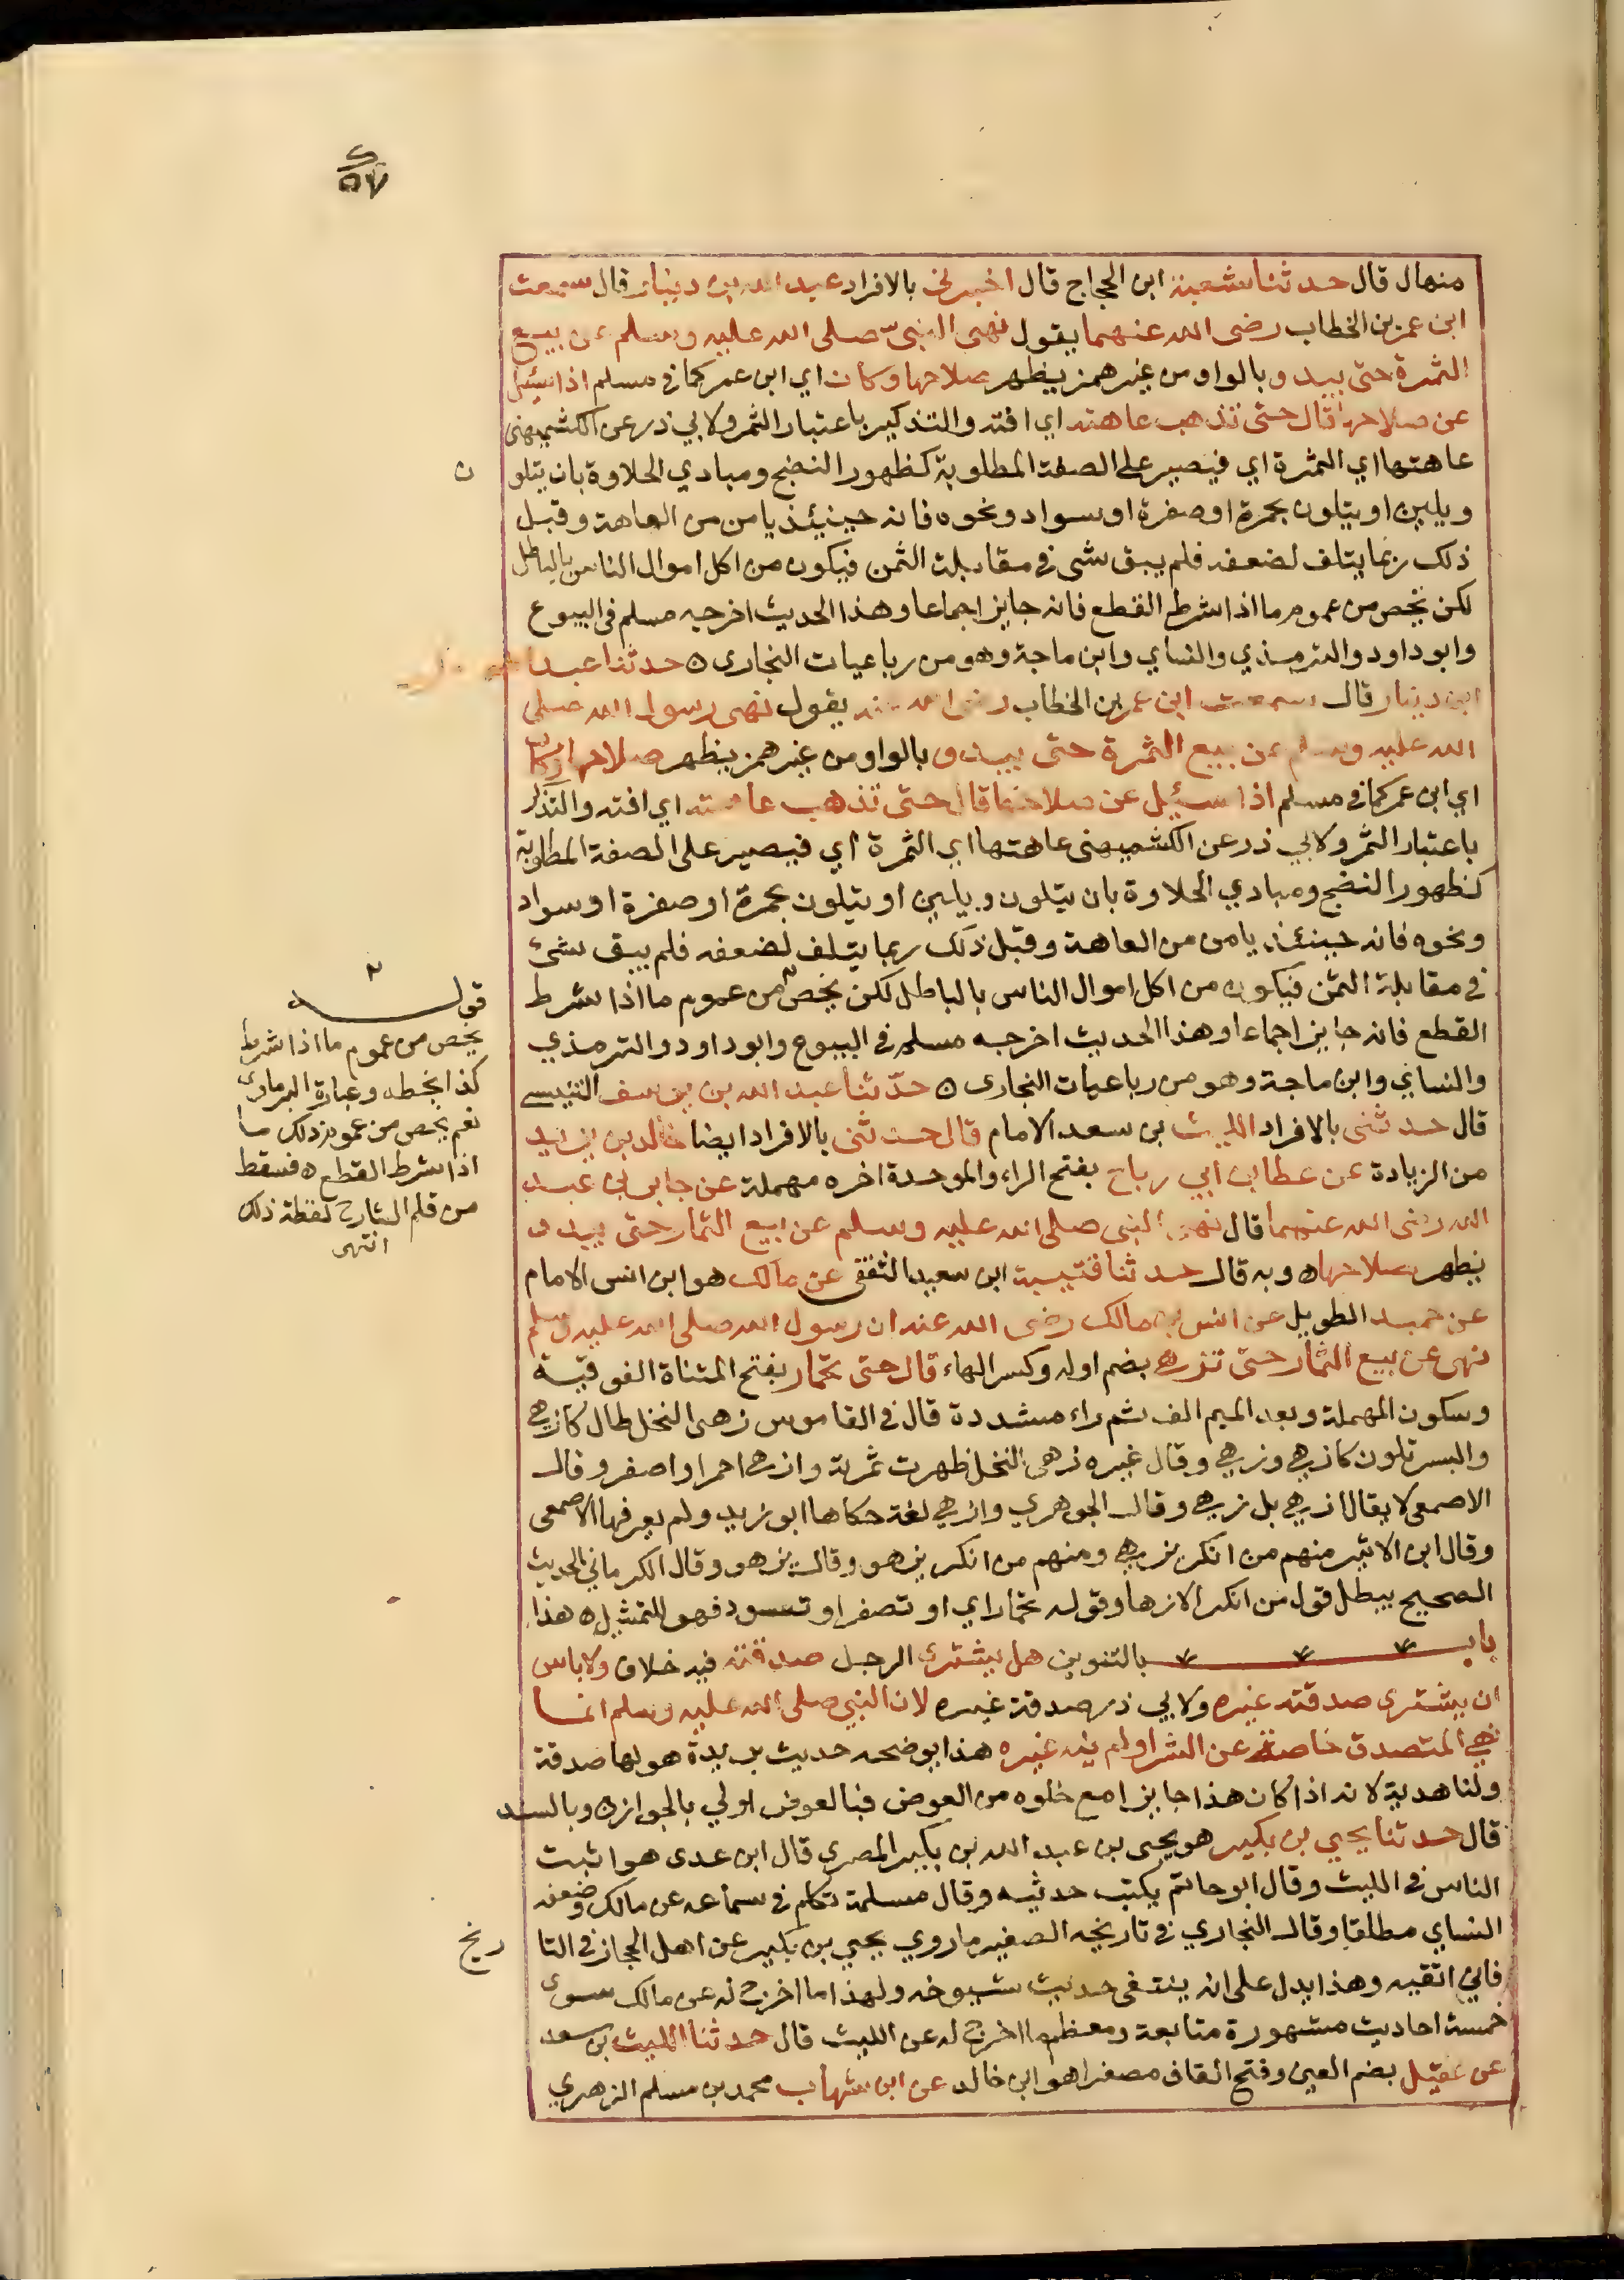 منهال قال حدثنا شعبة ابن الحجاج قال اخبرني بالافراد عبد الله بن دينار قال سمعت
ابن عمر بن الخطاب رضى الله عنهما يقول نهى النبي صلى الله عليه وسلم عن بيع
الثمرة حتى يبدو بالواو من غير همز يظهر صلاحها وكان اي ابن عمر كما في مسلم اذا سئل
عن صلاحها قال حتى تذهب عاهته اي افته والتذكير باعتبار الثمر ولابي ذر عن الكشميهنى
عاهتها اي الثمرة اي فيصير على الصفة المطلوبة كظهور النضج ومبادي الحلاوة بان يتلو ن
ويلين او يتلون بحمرة او صفرة او سواد ونحوه فانه حينيئذ يامن من العاهة وقبل
ذلك ربما يتلف لضعفه فلم يبق شى في مقابلة الثمن فيكون من اكل اموال الناس بالباطل
لكن يخص من عموم ما اذا شرط القطع فانه جايز اجماعا وهذا الحديث اخرجه مسلم فى البيوع
وابو داود والترمذي والنساي وابن ماجة وهو من رباعيات البخارى ه حدثنا عبد
ابن دينار قال سمعت ابن عمر بن الخطاب رضى الله عنه يقول نهى رسول الله صلى
الله عليه وسلم عن بيع الثمرة حتى يبدو بالواو من غير همز يظهر صلاحها وكان
اي ابن عمر كما في مسلم اذا سئيل عن صلاحها قال حتى تذهب عاهته اي افته والتذكير
باعتبار الثمر ولابي ذر عن الكشميهنى عاهتها اي الثمرة اي فيصير على الصفة المطلوبة
كظهور النضج ومبادي الحلاوة بان يتلون ويلين او يتلون بحمرة او صفرة او سواد
ونحوه فانه حينئذ يامن من العاهة وقبل ذلك ربما يتلف لضعفه فلم يبق شئ
في مقابلة الثمن فيكون من اكل اموال الناس بالباطل لكن يخص من عموم ما اذا شرط
القطع فانه جايز اجماعا وهذا الحديث اخرجه مسلم في البيوع وابو داود والترمذي
والنساي وابن ماجة وهو من رباعيات البخارى ه حدثنا عبد الله بن يوسف التنيسي
قال حدثنى بالافراد الليث بن سعد الامام قال حدثنى بالافراد ايضا خالد بن يزيد
من الزيادة عن عطا بن ابي رباح بفتح الراء والموحدة اخره مهملة عن جابر بن عبد
الله رضى الله عنهما قال نهى النبى صلى الله عليه وسلم عن بيع الثمار حتى يبدو
يظهر صلاحها ه وبه قال حدثنا قتيبة ابن سعيد الثقفى عن مالك هو ابن انس الامام
عن حميد الطويل عن انس بن مالك رضى الله عنه ان رسول الله صلى الله عليه وسلم
نهى عن بيع الثمار حتى تزهي بضم اوله وكسر الهاء قال حتى تحمار بفتح المثناة الفوقية
وسكون المهملة وبعد الميم الف ثم راء مشددة قال في القاموس زهى النخل طال كازهي
والبسر تلون كازهي وزهي وقال غيره زهى النخل ظهرت ثمرته وازهي احمر او اصفر وقال
الاصمعى لا يقال ازهي بل زهي وقال الجوهري وازهي لغة حكاها ابو زيد ولم يعرفها الاصمعى
وقال ابن الاثير منهم من انكر يزهي ومنهم من انكر يزهو وقال يزهو وقال الكرماني الحديث
الصحيح يبطل قول من انكر الازها وقوله تحمار اي او تصفر او تسود فهو للتمثيل ه هذا
باب بالتنوين هل يشترى الرجل صدقته فيه خلاف ولا باس
ان يشترى صدقته غيره ولابي ذر صدقة غيره لان النبي صلى الله عليه وسلم انما
نهي المتصدق خاصة عن الشرا ولم ينه غيره هذا يوضحه حديث بريدة هو لها صدقة
ولنا هدية لانه اذا كان هذا جايزا مع خلوه من العوض فبالعوض اولي بالجواز ه وبالسند
قال حدثنا يحيى بن بكير هو يحيى بن عبد الله بن بكير المصري قال ابن عدى هو اثبت
الناس في الليث وقال ابو حاتم يكتب حديثه وقال مسلمة تكلم في سماعه عن مالك وضعفه
النساي مطلقا وقال البخاري في تاريخه الصغير ما روي يحيى بن بكير عن اهل الحجاز في التا ريخ
فاني اتقيه وهذا يدل على انه ينتقى حديث شيوخه ولهذا ما اخرج له عن مالك سوى
خمسة احاديث مشهورة متابعة ومعظم ما اخرج له عن الليث قال حدثنا الليث بن سعد
عن عقيل بضم العين وفتح القاف مصغرا هو ابن خالد عن ابن شهاب محمد بن مسلم الزهري
قوله
يخص من عموم ما اذا شرط
كذا بخطه وعبارة البرماوى
نعم يخص من عموم ذلك ما
اذا شرط القطع ه فسقط
من قلم الشارح لفظة ذلك
انتهى